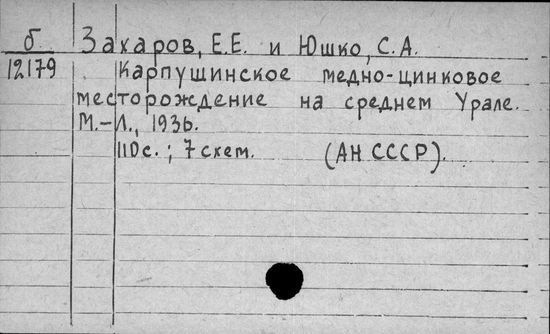 б
12179
Захаров, Е.Е. и Юшко, С.А.
Карпушинское медно-цинковое
месторождение на среднем Урале.
М.-Л., 1936.
110с.; 7 схем. (АН СССР).